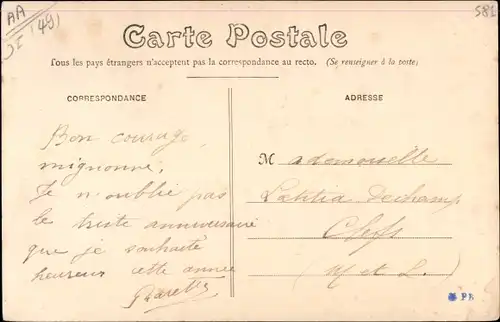 AA
(49)
58L
Carte Postale
Tous les pays étrangers n'acceptent pas la correspondance au recto. (Se renseigner à la poste)
CORRESPONDANCE
Bon courage
mignonne,
Je n'oublie pas
le triste anniversaire
que je souhaite
heureux cette année
ADRESSE
Mademoiselle
Laetitia Dechamp
Clefs
(M et L.)
PB